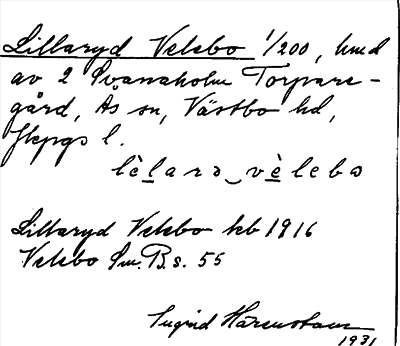 Lillaryd Velebo 1/200, hmd
av 2 Svanaholm Torpare-
gård, Ås sn, Västbo hd,
Jkpgs l.
lèlarə‿vèlebə
Lillaryd Velebo kb 1916
Velebo Sm. B. s. 55
Ingrid
1931